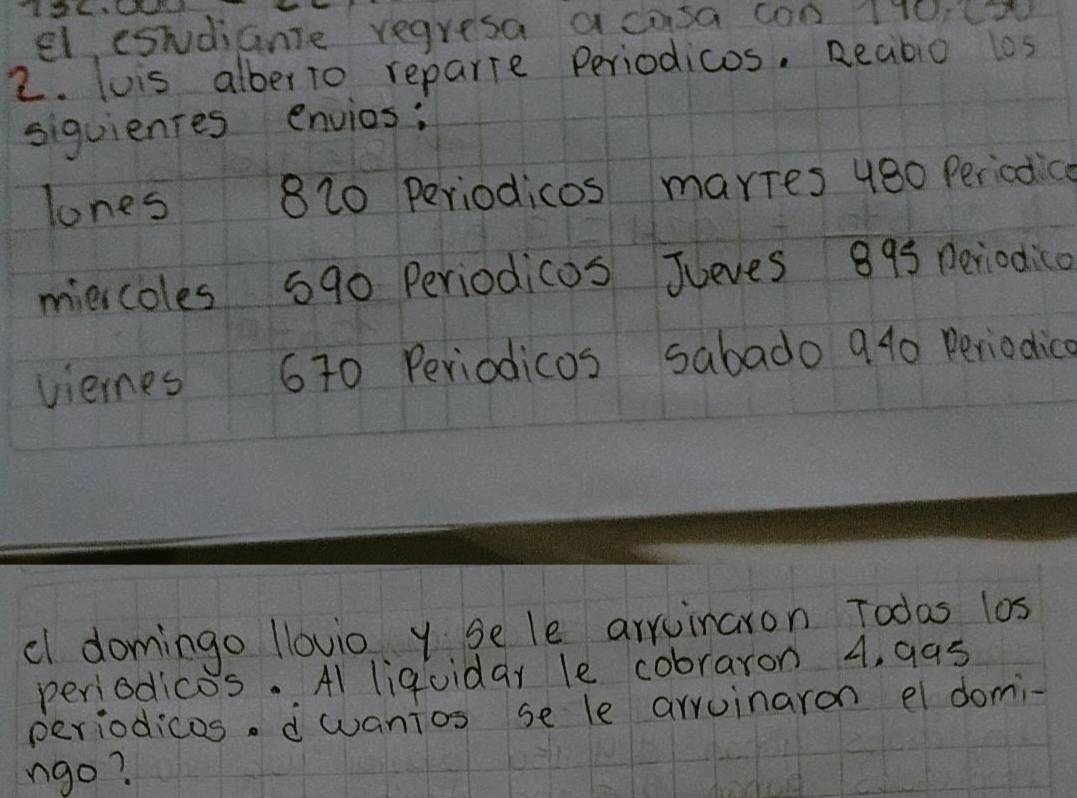 el estudiante regresa a casa con
2. luis alberto reparte Periodicos. Recibio los
siguientes envios:
lunes 820 Periodicos martes 480 Periodico
miercoles 590 Periodicos Jueves 895 Periodico
viernes 670 Periodicos sabado 940 Periodico
el domingo llovio y se le arruinaron Todos los
periodicos. Al liquidar le cobraron 4.995
periodicos. ¿ cuantos se le arruinaron el domi-
ngo?